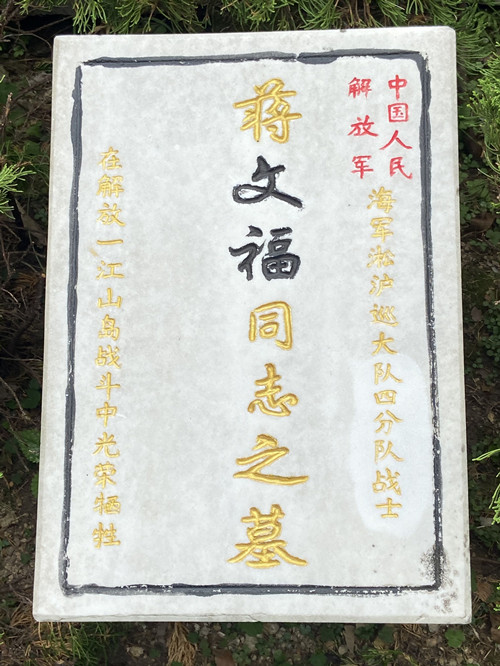 中国人民
解放军
海军淞沪巡大队四分队战士
蒋文福同志之墓
在解放一江山岛战斗中光荣牺牲